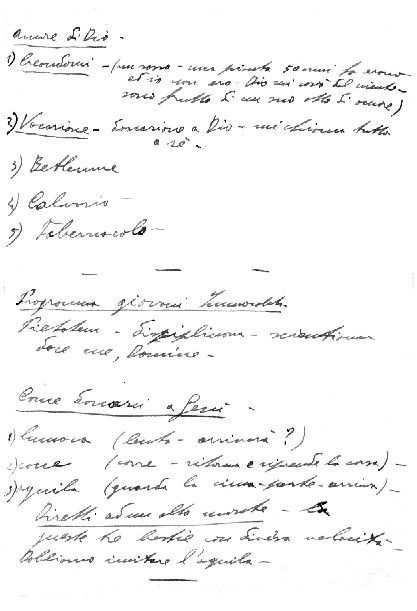 Amore di Dio -
1) Creandomi - (un sasso - una pianta 50 anni fa erano
ed io non ero. Dio mi creò dal niente -
sono frutto di un suo atto di amore)
2) Vocazione - donazione a Dio - mi chiama tutto
a sé -.
3) Betlemme
4) Calvario -
5) Tabernacolo -
Programma giovani Immacolata
Pietatem - disciplinam - scientiam
doce me, Domine -
Come donarsi a Gesù -
1) lumaca (lenta - arriverà ?)
2) cane (corre - ritorna e riprende la corsa) -
3) aquila (guarda la cima - parte - arriva) -
Diretti ad un alto monte -
queste tre bestie con diversa velocità -
Dobbiamo imitare l'aquila -